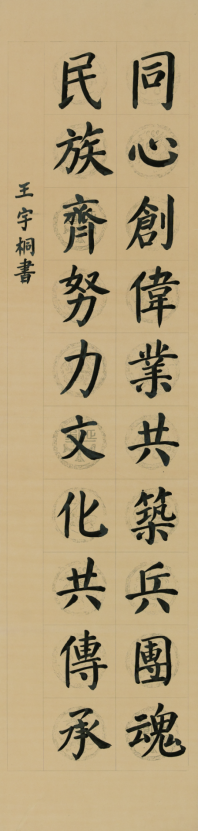 同心創偉業共築兵團魂
民族齊努力文化共傳承
王宇桐書